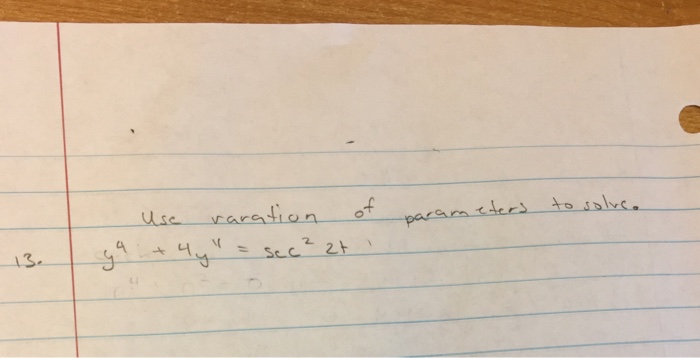 Use varation of parameters to solve.
13. y⁴ + 4y'' = sec² 2t